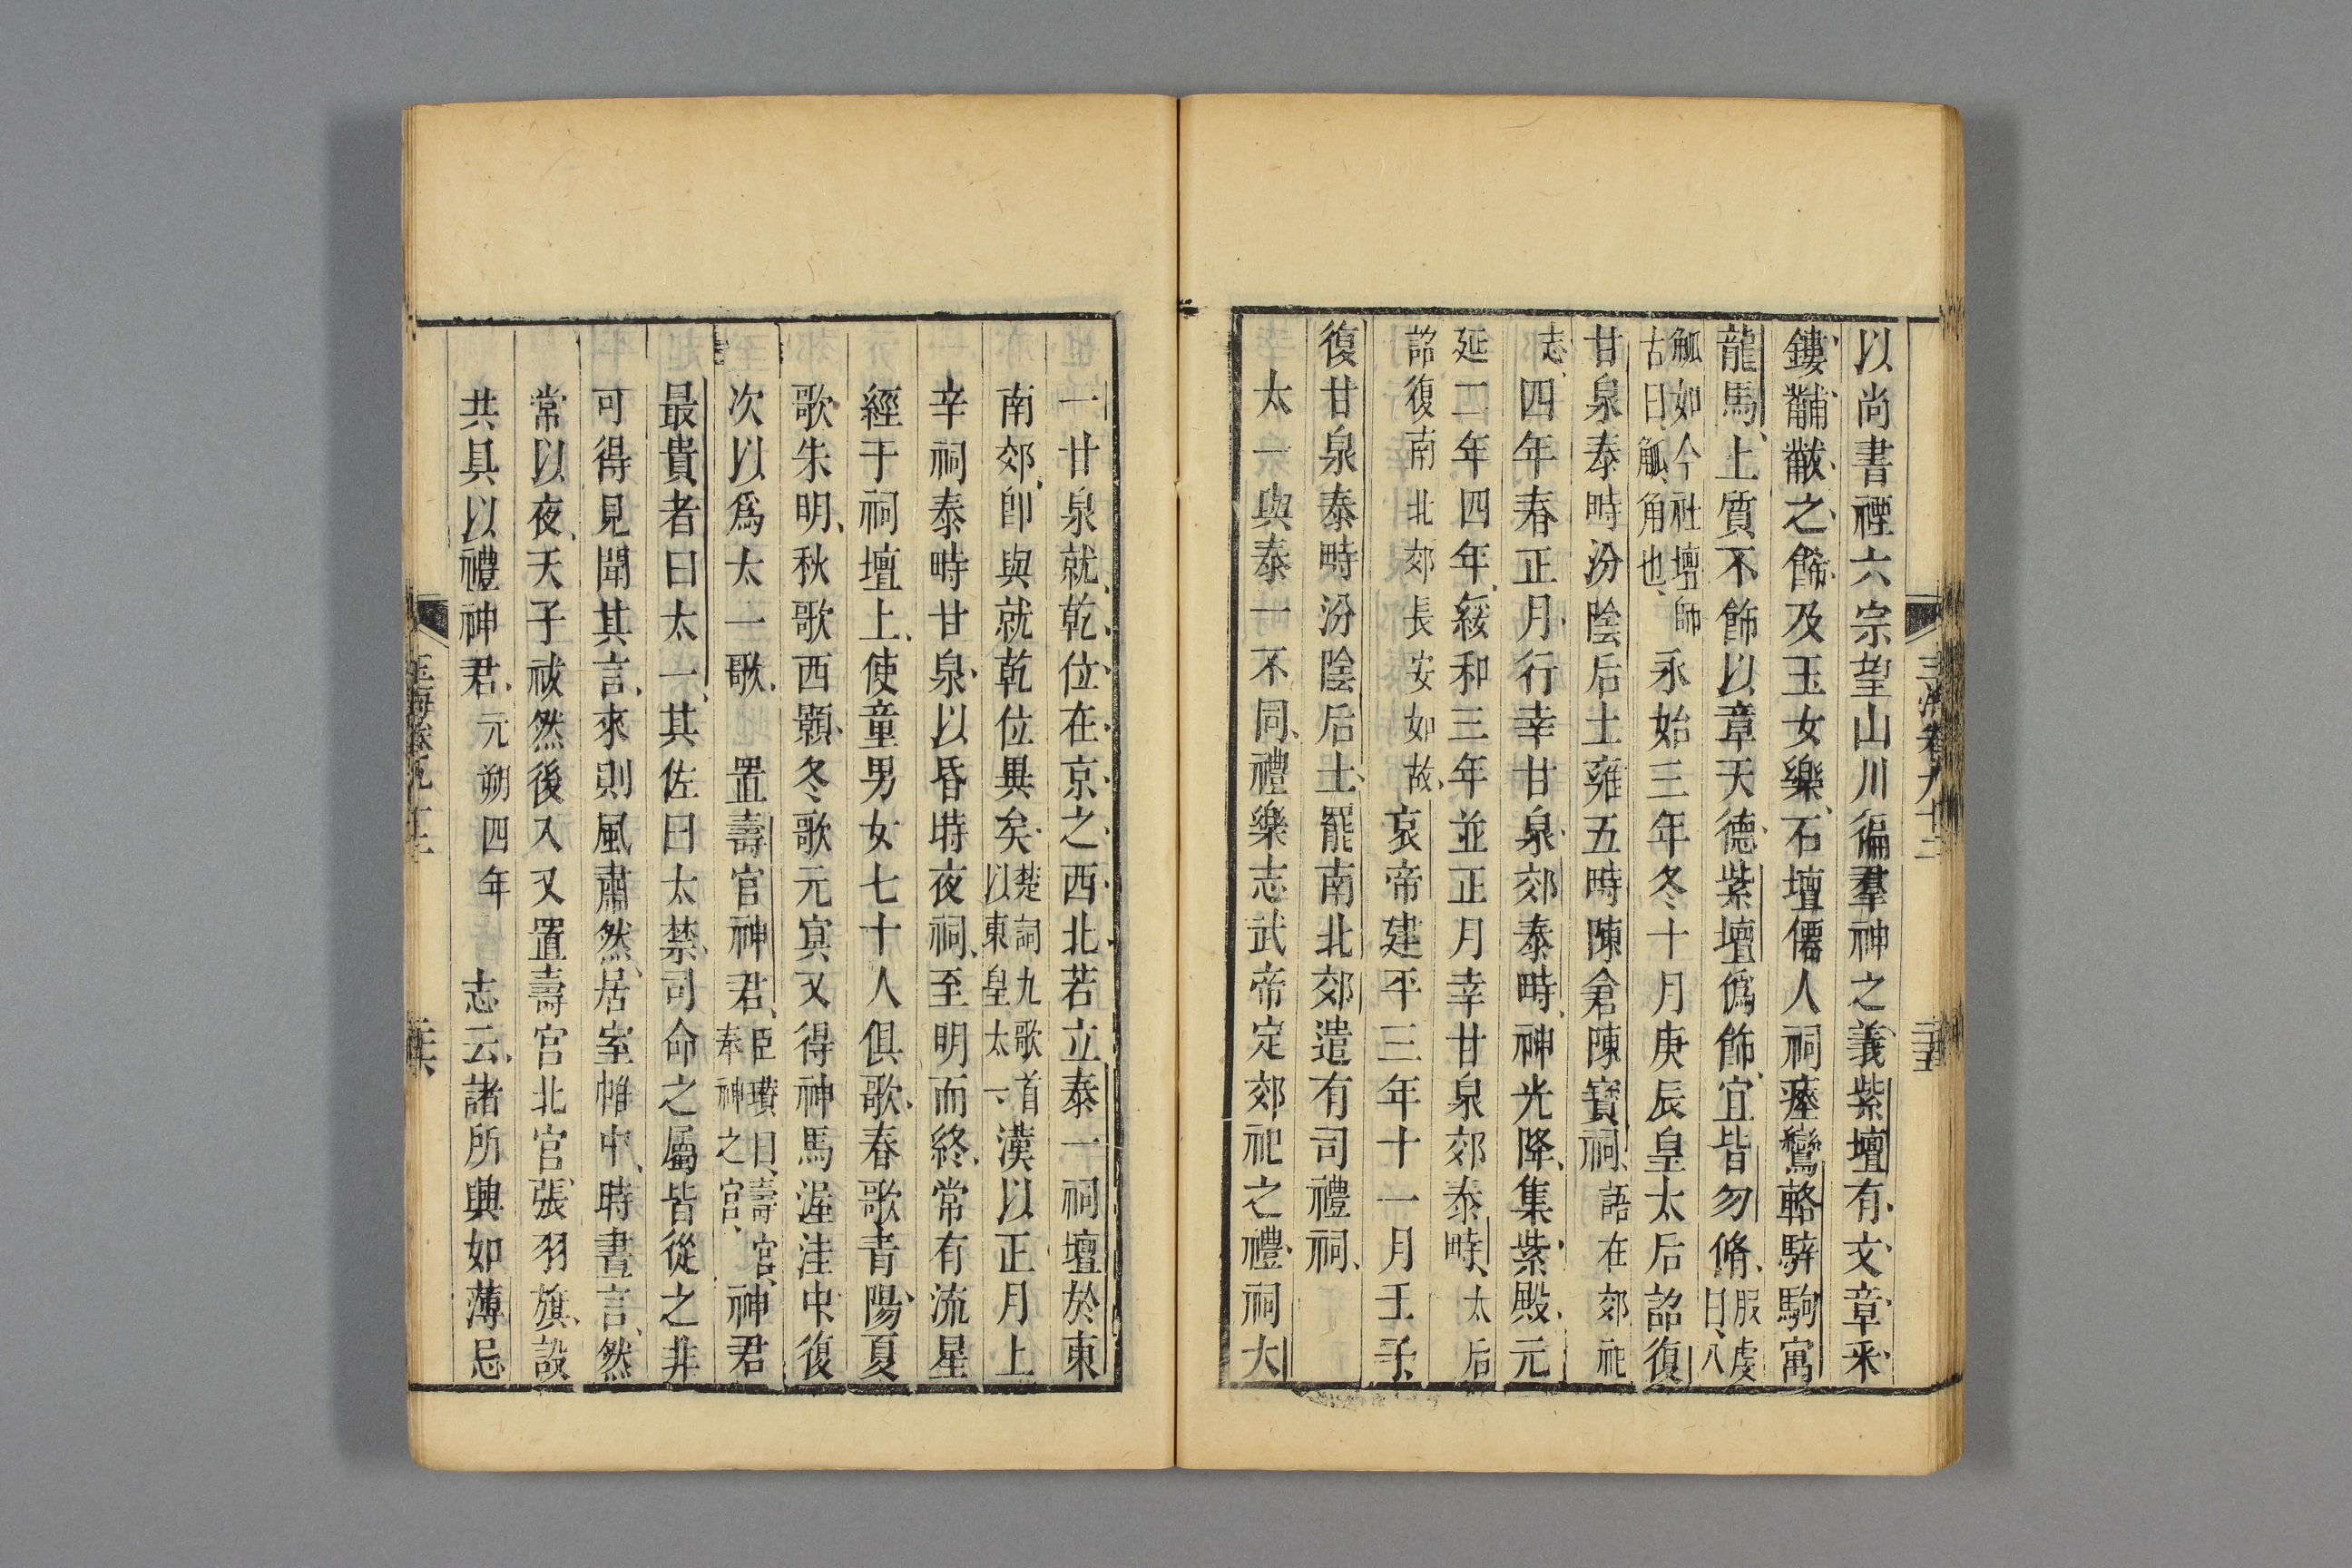 以尚書禋六宗望山川徧羣神之義紫壇有文章采
鏤黼黻之飾及玉女樂石壇僊人祠瘞鸞輅騂駒寓
龍馬上質不飾以章天德紫壇僞飾宜皆勿脩服虔曰八
觚如今社壇師古曰觚角也永始三年冬十月庚辰皇太后詔復
甘泉泰畤汾陰后土雍五畤陳倉陳寶祠語在郊祀
志四年春正月行幸甘泉郊泰畤神光降集紫殿元
延二年四年綏和三年並正月幸甘泉郊泰畤太后
詔復南北郊長安如故哀帝建平三年十一月壬子
復甘泉泰畤汾陰后土罷南北郊遣有司禮祠
太一與泰一不同禮樂志武帝定郊祀之禮祠太
一甘泉就乾位在京之西北若立泰一祠壇於東
南郊卽與就乾位異矣楚詞九歌首以東皇太一漢以正月上
辛祠泰畤甘泉以昏時夜祠至明而終常有流星
經于祠壇上使童男女七十人俱歌春歌青陽夏
歌朱明秋歌西顥冬歌元冥又得神馬渥洼中復
次以爲太一歌 置壽宮神君臣瓚曰壽宮奉神之宮神君
最貴者曰太一其佐曰太禁司命之屬皆從之非
可得見聞其言來則風肅然居室帷中時晝言然
常以夜天子祓然後入又置壽宮北宮張羽旗設
共具以禮神君元朔四年 志云諸所興如薄忌
玉海卷九十三